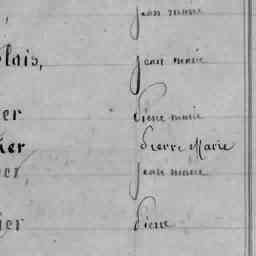 jean marie
lais, jean marie
er Pierre marie
ier Pierre Marie
er jean marie
ier Pierre